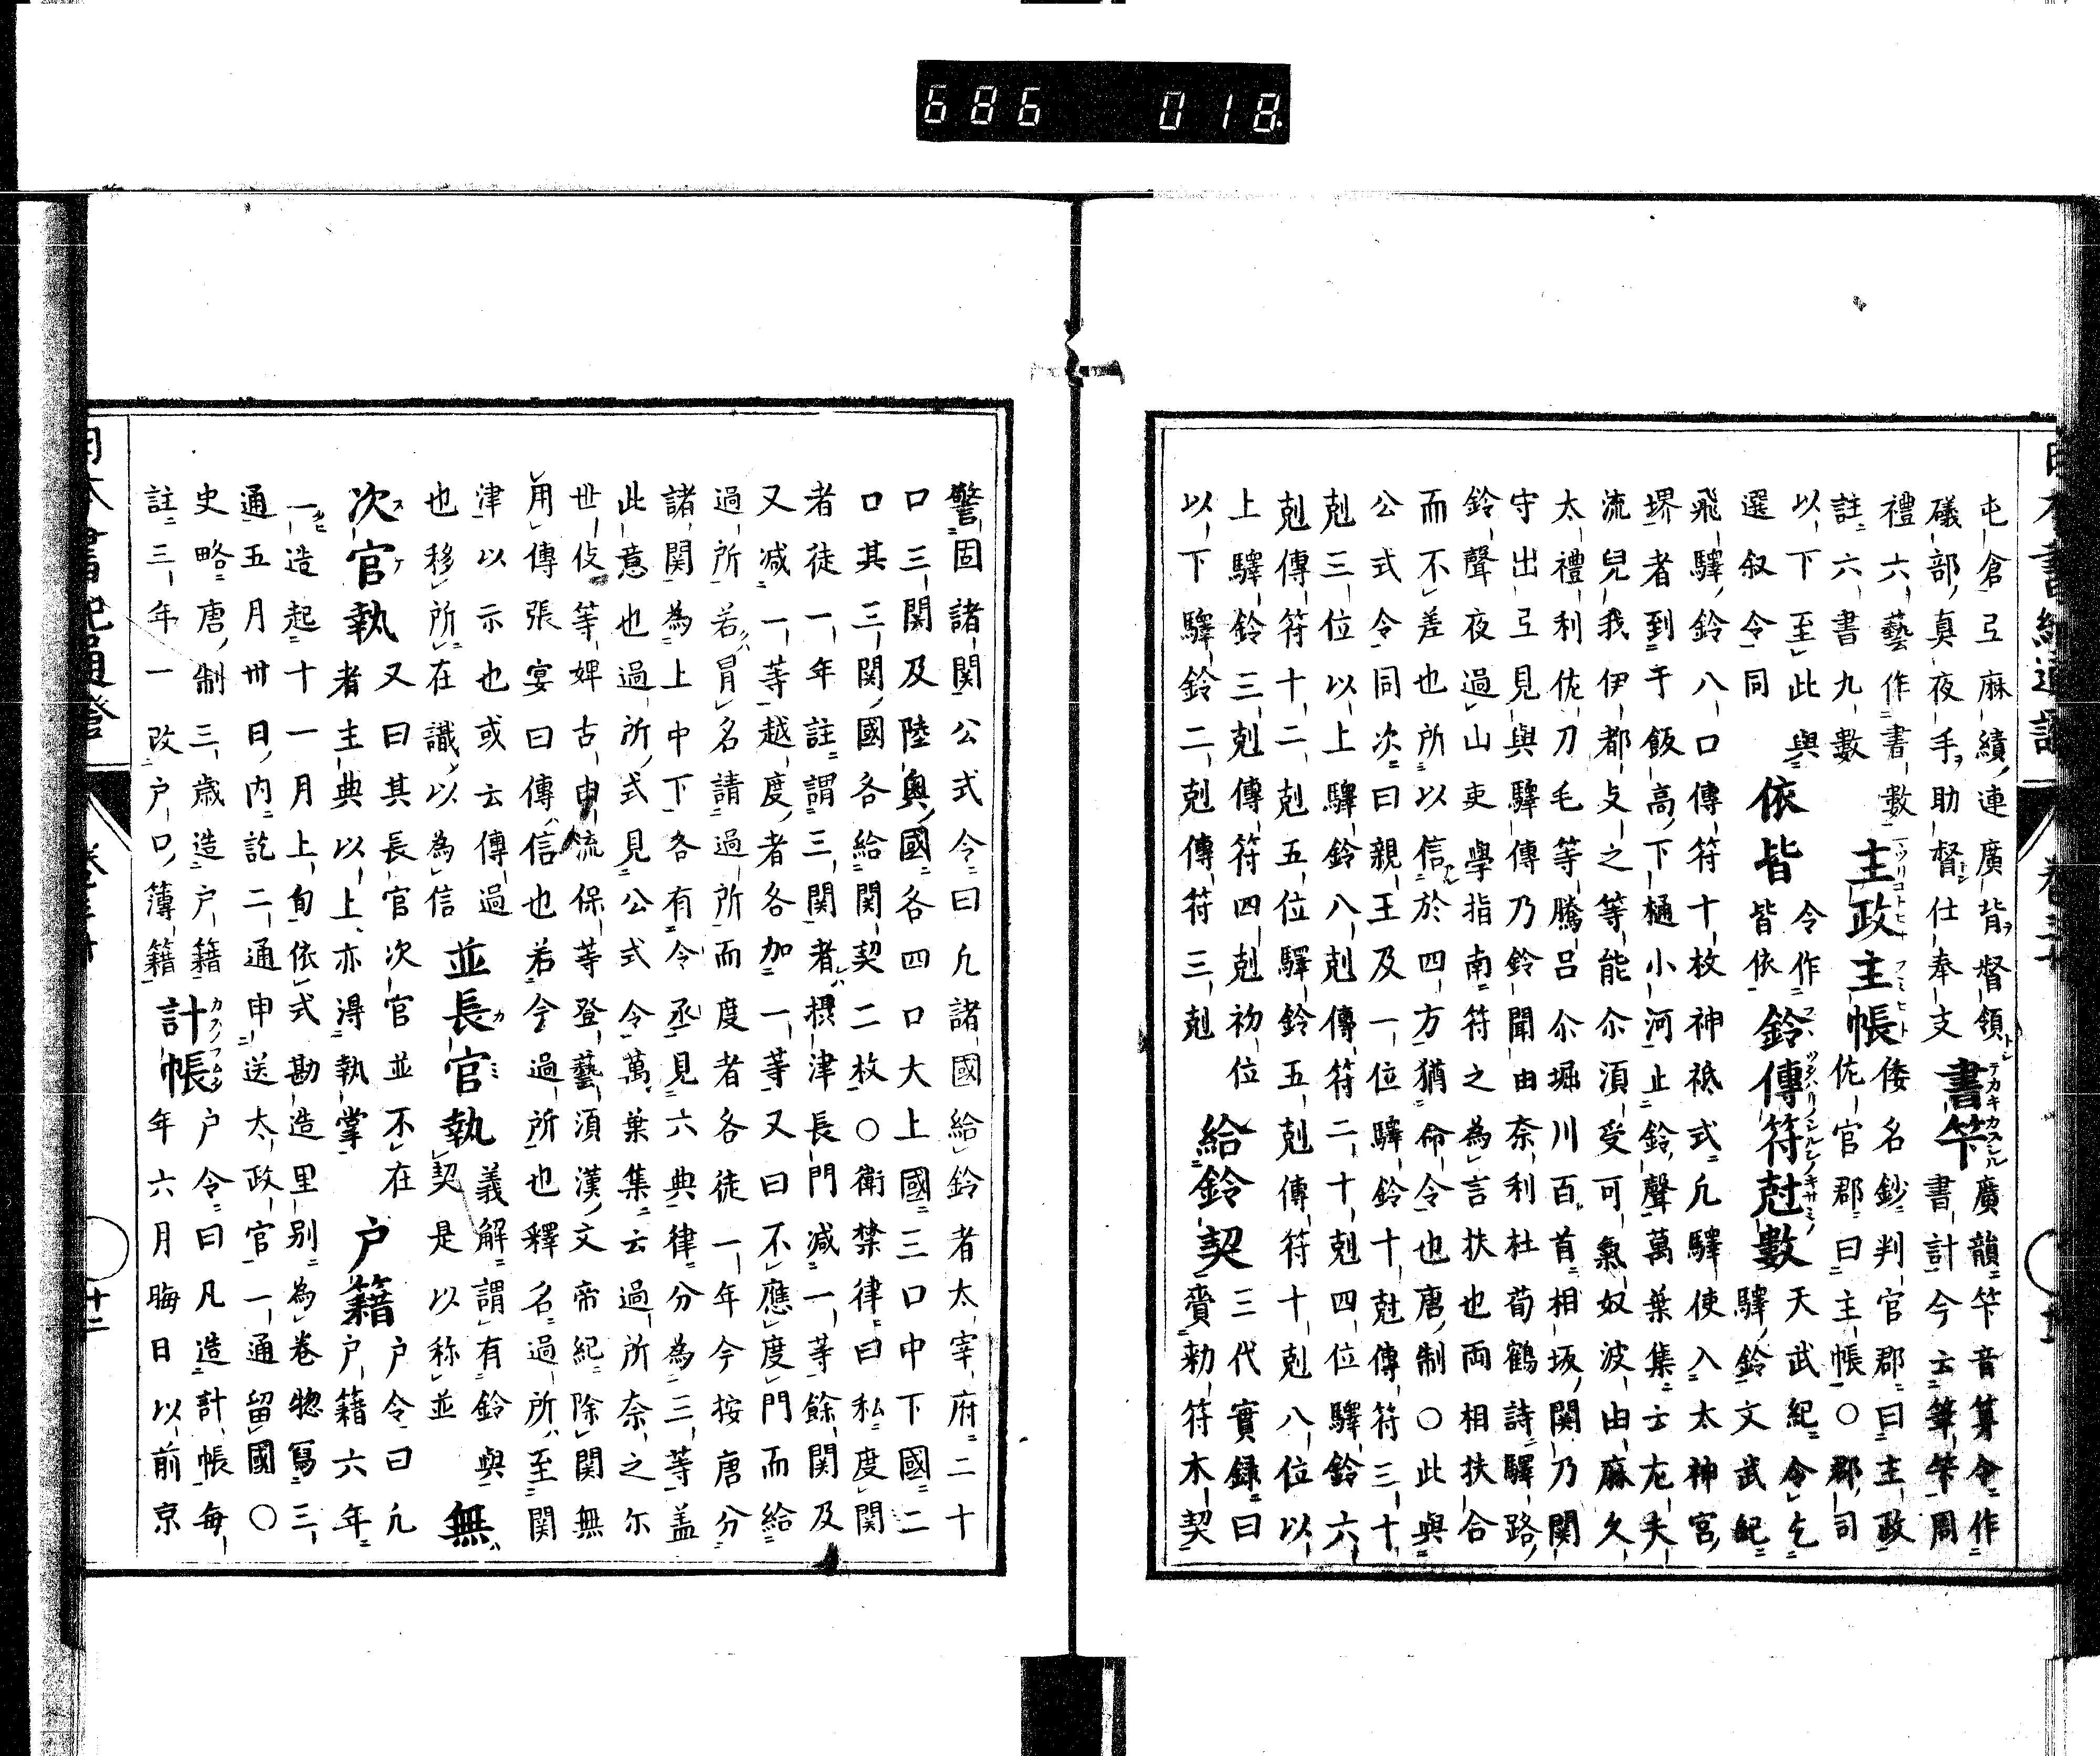 686 018
日本書紀通證 卷三十
屯倉弖麻績連廣背督領
礒部真夜手助督仕奉支 書筭 廣韻筭音算令作
禮六藝作書數 書計今云筆筭周
註六書九數 主政主帳 倭名鈔判官郡曰主政
以下至此與 佐官郡曰主帳○郡司
選叙令同 依皆 令作皆依 鈴傳符尅數 天武紀令乞驛鈴文武紀
飛驛鈴八口傳符十枚神祗式凢驛使入太神宮
堺者到于飯高下樋小河止鈴聲萬葉集云左夫
流兒我伊都攴之等能尒須受可氣奴波由麻久
太禮利佐刀毛等騰呂尒堀川百首相坂関乃関
守出弖見與驛傳乃鈴聞由奈利杜荀鶴詩驛路
鈴聲夜過山吏學指南符之為言扶也両相扶合
而不差也所以信於四方猶命令也唐制○此與
公式令同次曰親王及一位驛鈴十尅傳符三十
尅三位以上驛鈴八尅傳符二十尅四位驛鈴六
尅傳符十二尅五位驛鈴五尅傳符十尅八位以
上驛鈴三尅傳符四尅初位
以下驛鈴二尅傳符三尅 給鈴契 三代實録曰賫勑符木契
警固諸関公式令曰凢諸國給鈴者太宰府二十
口三関及陸奥國各四口大上國三口中下國二
口其三関國各給関契二枚○衛禁律曰私度関
者徒一年註謂三関者摂津長門减一等餘関及
又减一等越度者各加一等又曰不應度門而給
過所若冒名請過所而度者各徒一年今按唐分
諸関為上中下各有令丞見六典律分為三等盖
此意也過所式見公式令萬葉集云過所奈之尓
世伎等婢古由流保等登藝須漢文帝紀除関無
用傳張宴曰傳信也若今過所也釋名過所至関
津以示也或云傳過
也移所在識以為信 並長官執 義解謂有鈴與契是以称並 無
次官執 又曰其長官次官並不在
者主典以上亦得執掌 户籍 户令曰凢户籍六年
一造起十一月上旬依式勘造里别為巻惣寫三
通五月卅日内訖二通申送太政官一通留國○
史略唐制三歳造户籍
註三年一改户口簿籍 計帳 户令曰凡造計帳毎年六月晦日以前京
日本書紀通證 卷三十 十二